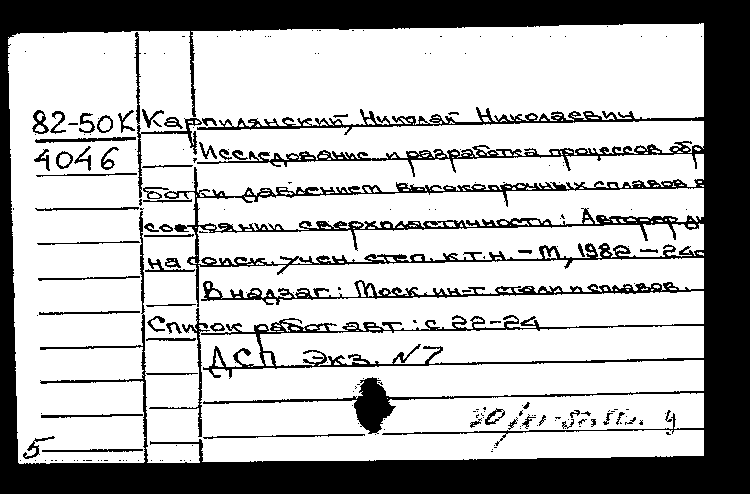 82-50К Карпилянский, Николай Николаевич
4046 Исследование и разработка процессов обра
ботки давлением высокопрочных сплавов в
состоянии сверхпластичности: Автореф ди
на соиск. учен. степ. к.т.н. - М, 1982. - 24с
В надзаг.: Моск. ин-т стали и сплавов.
Список работ авт.: с. 22-24
ДСП Экз. N7
5